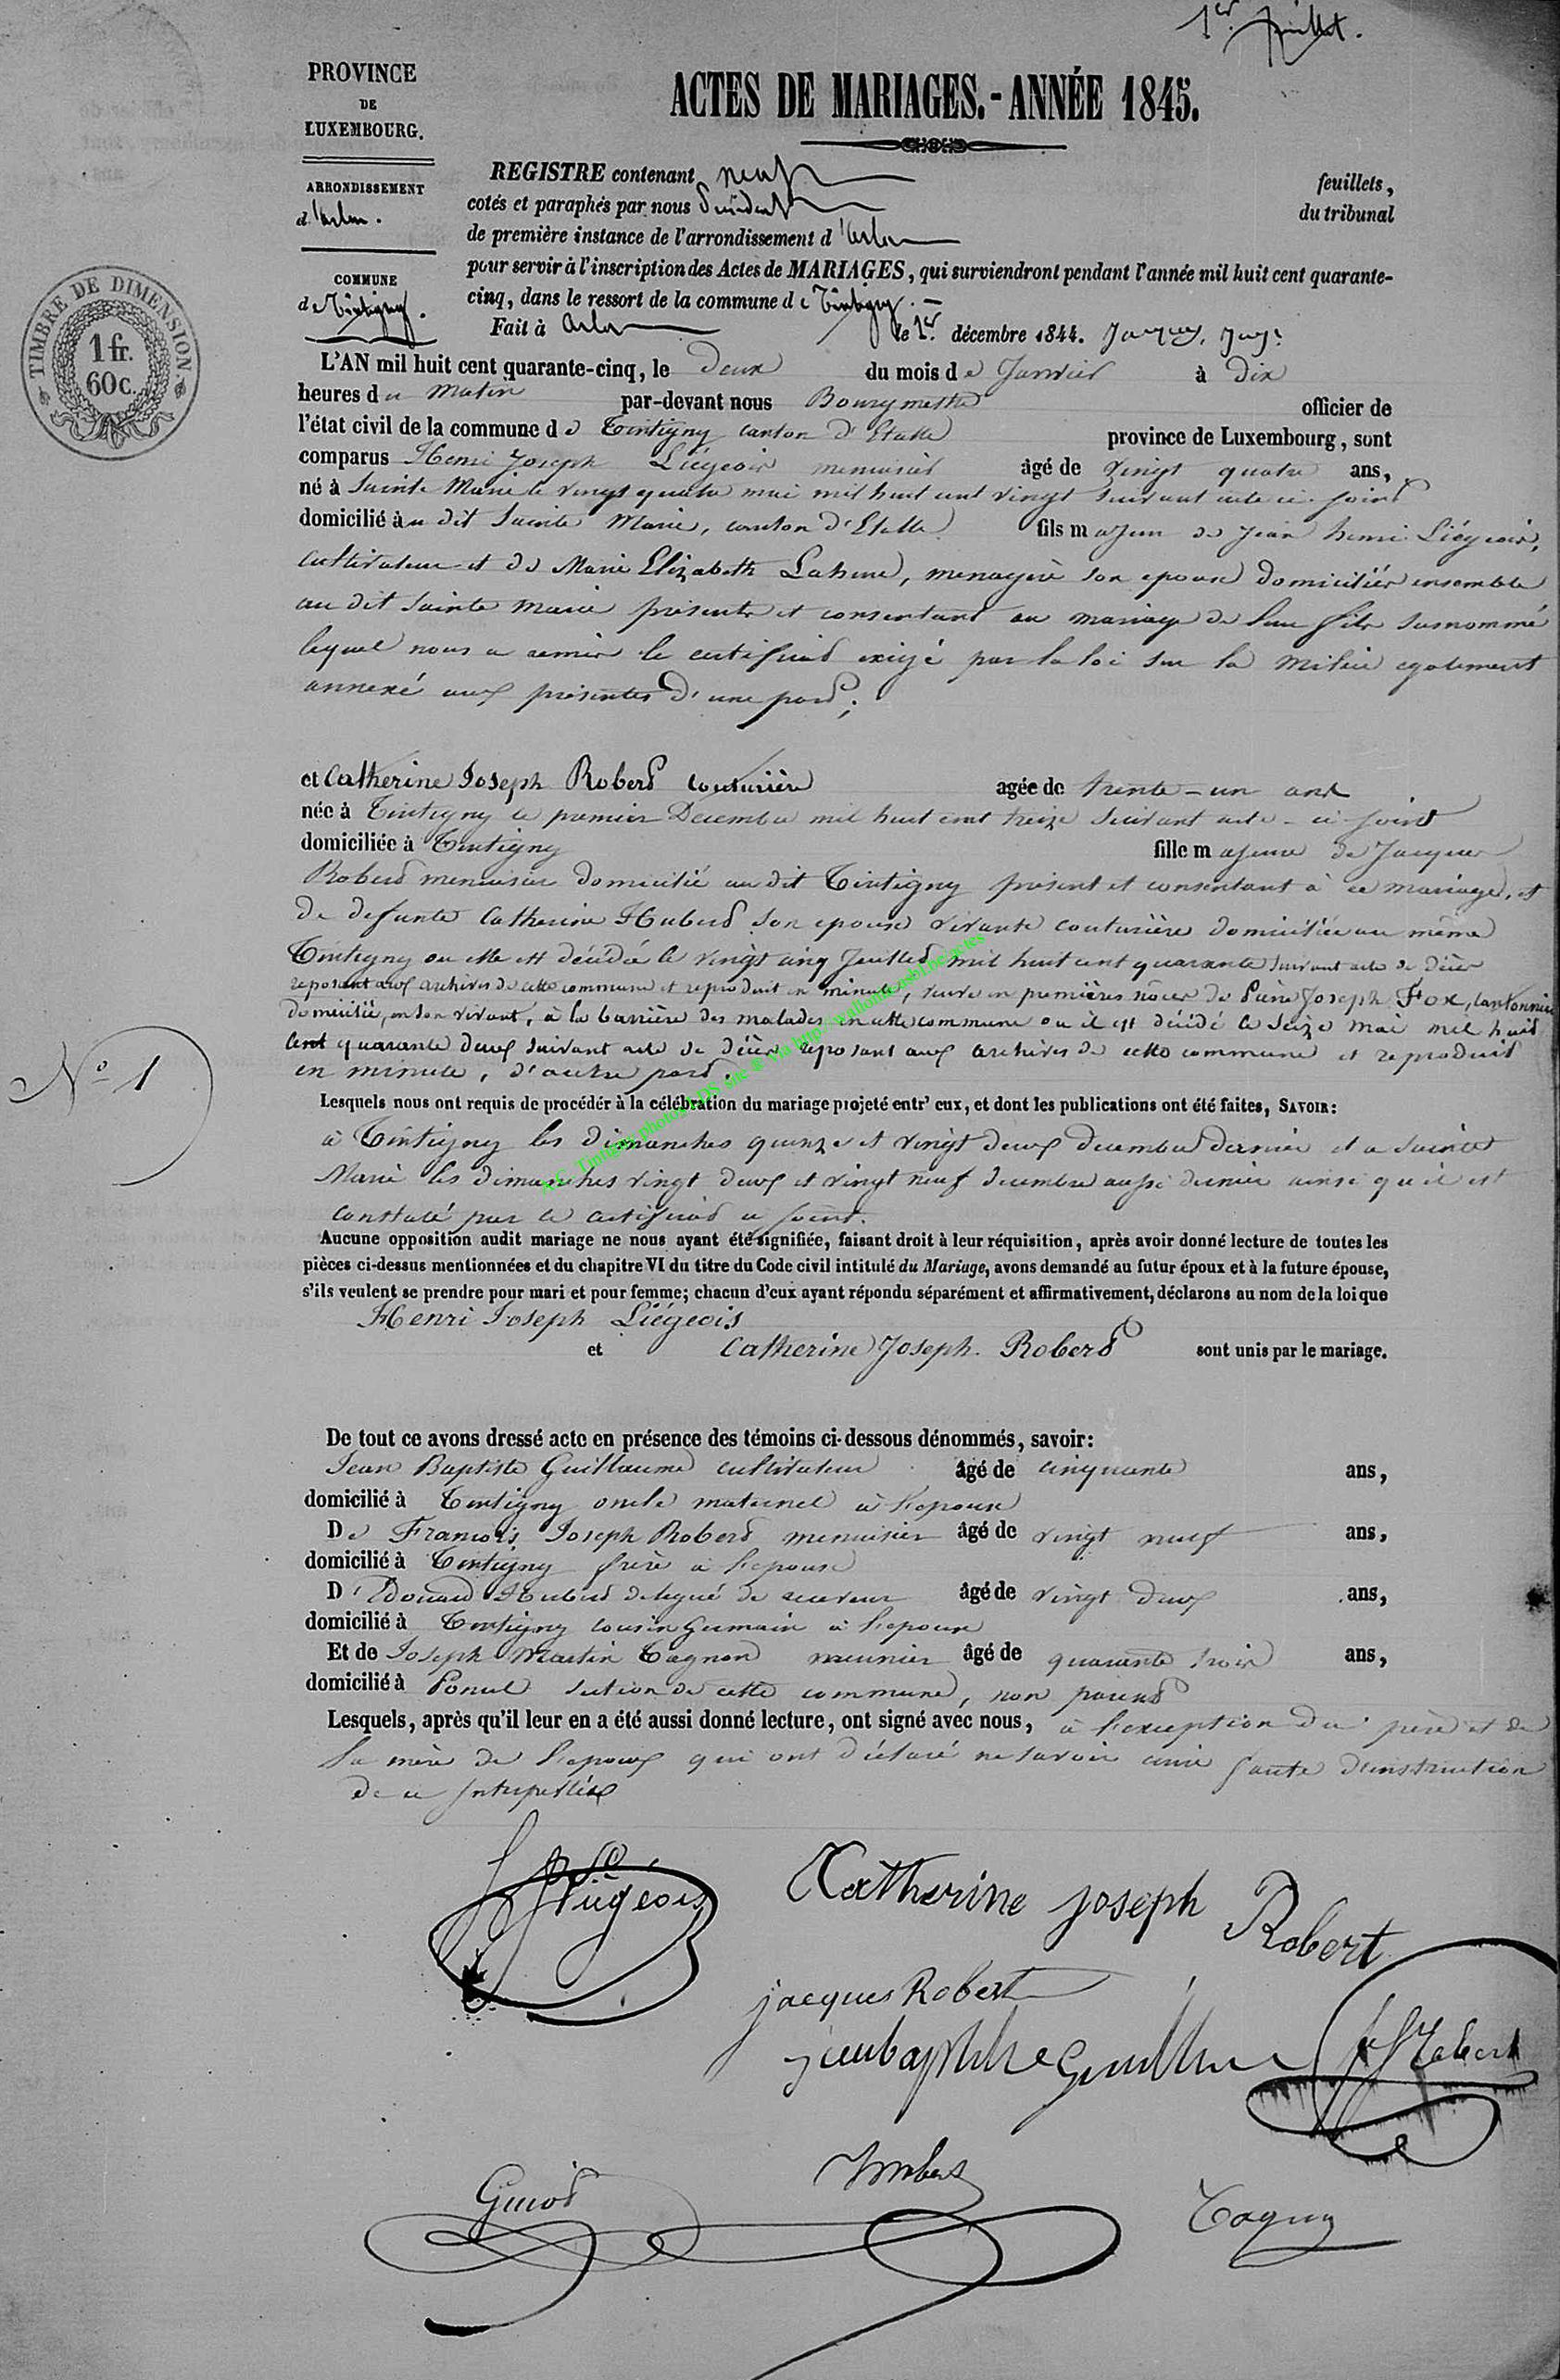 1er Juillet.
PROVINCE
DE
LUXEMBOURG.
ACTES DE MARIAGES.-ANNÉE 1845.
ARRONDISSEMENT
d'Arlon.
COMMUNE
de Tintigny.
TIMBRE DE DIMENSION.
1 fr.
60 c.
REGISTRE contenant neuf feuillets,
cotés et paraphés par nous Président du tribunal
de première instance de l'arrondissement d'Arlon
pour servir à l'inscription des Actes de MARIAGES, qui surviendront pendant l'année mil huit cent quarante-
cinq, dans le ressort de la commune de Tintigny.
Fait à Arlon le 1er décembre 1844.
L'AN mil huit cent quarante-cinq, le deux du mois de Janvier à dix
heures du matin par-devant nous Bourgmestre officier de
l'état civil de la commune de Tintigny canton d'Etalle province de Luxembourg, sont
comparus Henri Joseph Liégeois menuisier âgé de vingt quatre ans,
né à Sainte Marie le vingt quatre mai mil huit cent vingt suivant acte ci-joint
domicilié au dit Sainte Marie, canton d'Etalle fils majeur de Jean henri Liégeois,
cultivateur et de Marie Elizabeth Lahure, menagère son epouse domiciliés ensemble
au dit Sainte Marie présents et consentant au mariage de leur fils susnommé
lequel nous a remis le certificat exigé par la loi sur la milice egalement
annexé aux présentes d'une part;
et Catherine Joseph Robert couturière agée de trente-un ans
née à Tintigny le premier Décembre mil huit cent treize suivant acte ci-joint
domiciliée à Tintigny fille majeure de Jacques
Robert menuisier domicilié au dit Tintigny présent et consentant à ce mariage, et
de defunte Catherine Hubert son epouse vivante couturière domiciliée au même
Tintigny ou elle est décédée le vingt cinq Juillet mil huit cent quarante suivant acte de décès
reposant aux archives de cette commune et reproduit en minute, veuve en premières nôces de Pierre Joseph Fox, cantonnier
domicilié, en son vivant, à la barrière des malades en cette commune ou il est décédé le seize mai mil huit
cent quarante deux suivant acte de décès reposant aux archives de cette commune et reproduit
en minute, d'autre part.
N° 1
Lesquels nous ont requis de procéder à la célébration du mariage projeté entr'eux, et dont les publications ont été faites, SAVOIR:
à Tintigny les dimanches quinze et vingt deux décembre dernier et a Sainte
Marie les dimanches vingt deux et vingt neuf decembre aussi dernier ainsi qu'il est
constaté par le certificat ci joint.
Aucune opposition audit mariage ne nous ayant été signifiée, faisant droit à leur réquisition, après avoir donné lecture de toutes les
pièces ci-dessus mentionnées et du chapitre VI du titre du Code civil intitulé du Mariage, avons demandé au futur époux et à la future épouse,
s'ils veulent se prendre pour mari et pour femme; chacun d'eux ayant répondu séparément et affirmativement, déclarons au nom de la loi que
Henri Joseph Liégeois
et Catherine Joseph Robert sont unis par le mariage.
De tout ce avons dressé acte en présence des témoins ci-dessous dénommés, savoir:
Jean Baptiste Guillaume cultivateur âgé de cinquante ans,
domicilié à Tintigny oncle maternel à l'epouse
De François Joseph Robert menuisier âgé de vingt neuf ans,
domicilié à Tintigny frère à l'epouse
D'Edouard Hubert delegué de receveur âgé de vingt deux ans,
domicilié à Tintigny cousin germain à l'epouse
Et de Joseph Martin Tagnon meunier âgé de quarante trois ans,
domicilié à Poncel section de cette commune, non parent
Lesquels, après qu'il leur en a été aussi donné lecture, ont signé avec nous, à l'exception du père et de
la mère de l'epoux qui ont déclaré ne savoir ecrire faute d'instruction
de ce Interpellés
Liégeois
Catherine joseph Robert
jacques Robert
jeanbaptiste Guillaume
Hubert
Tagnon